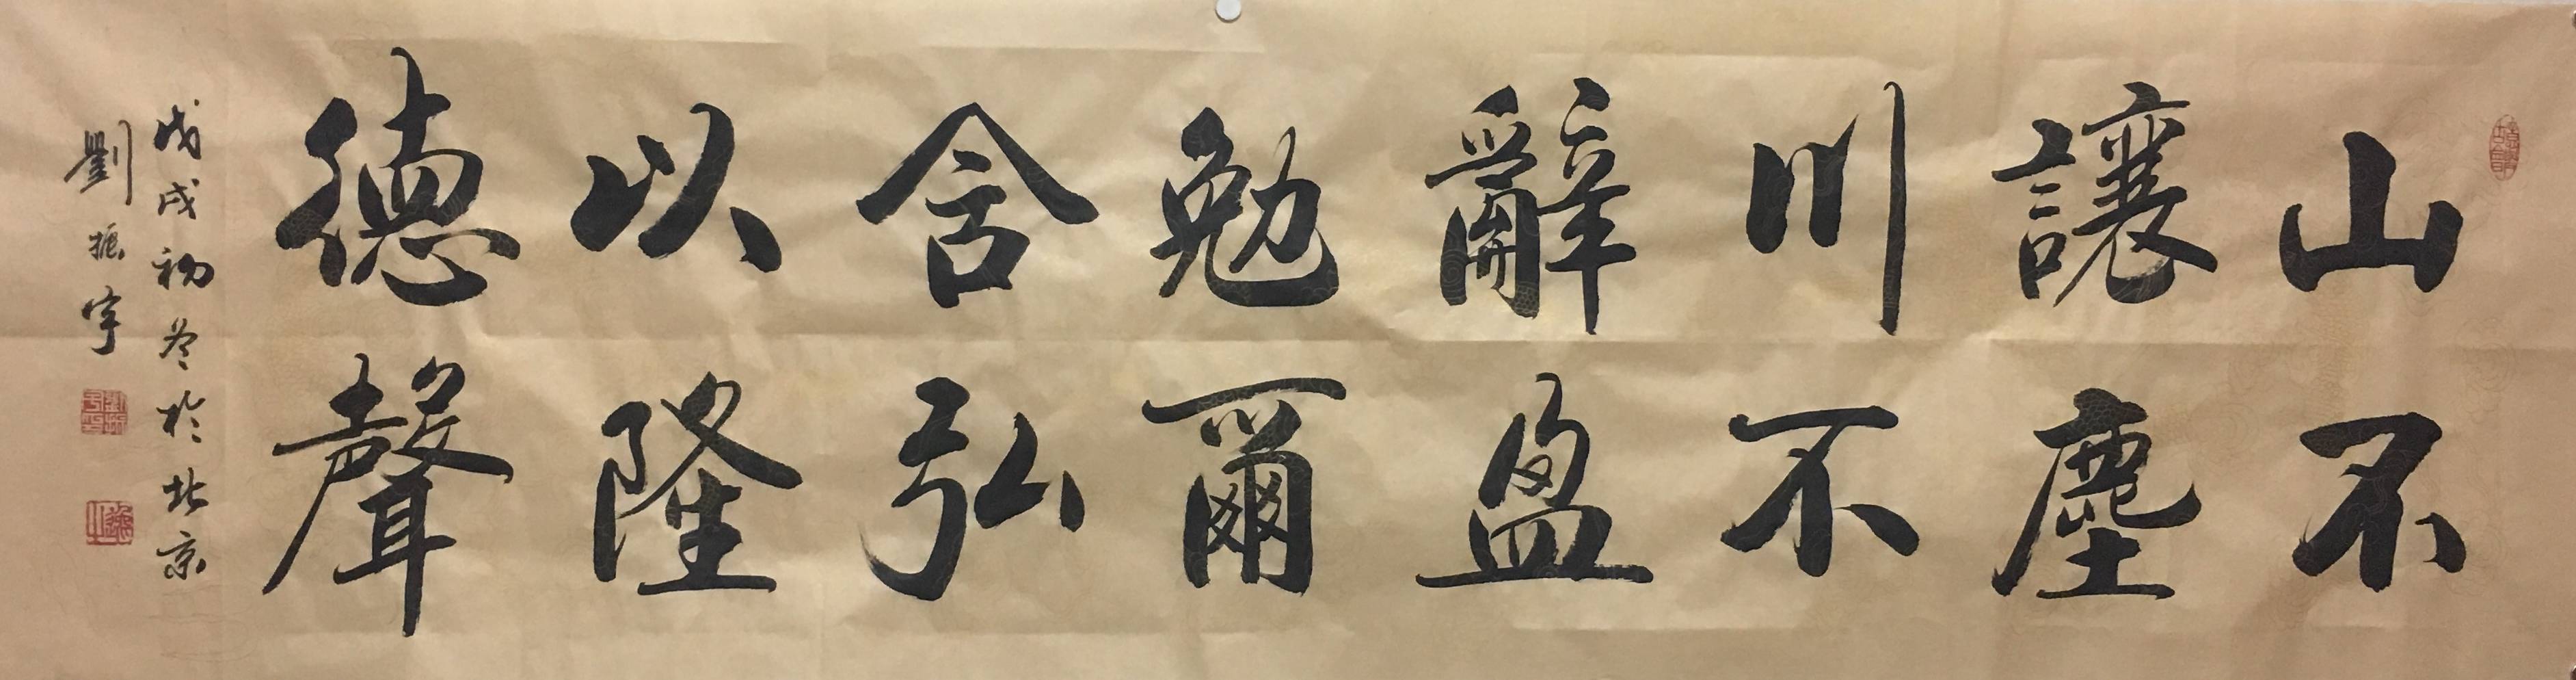 山不
讓塵
川不
辭盈
勉爾
含弘
以隆
德聲
戊戌初冬於北京
劉振宇